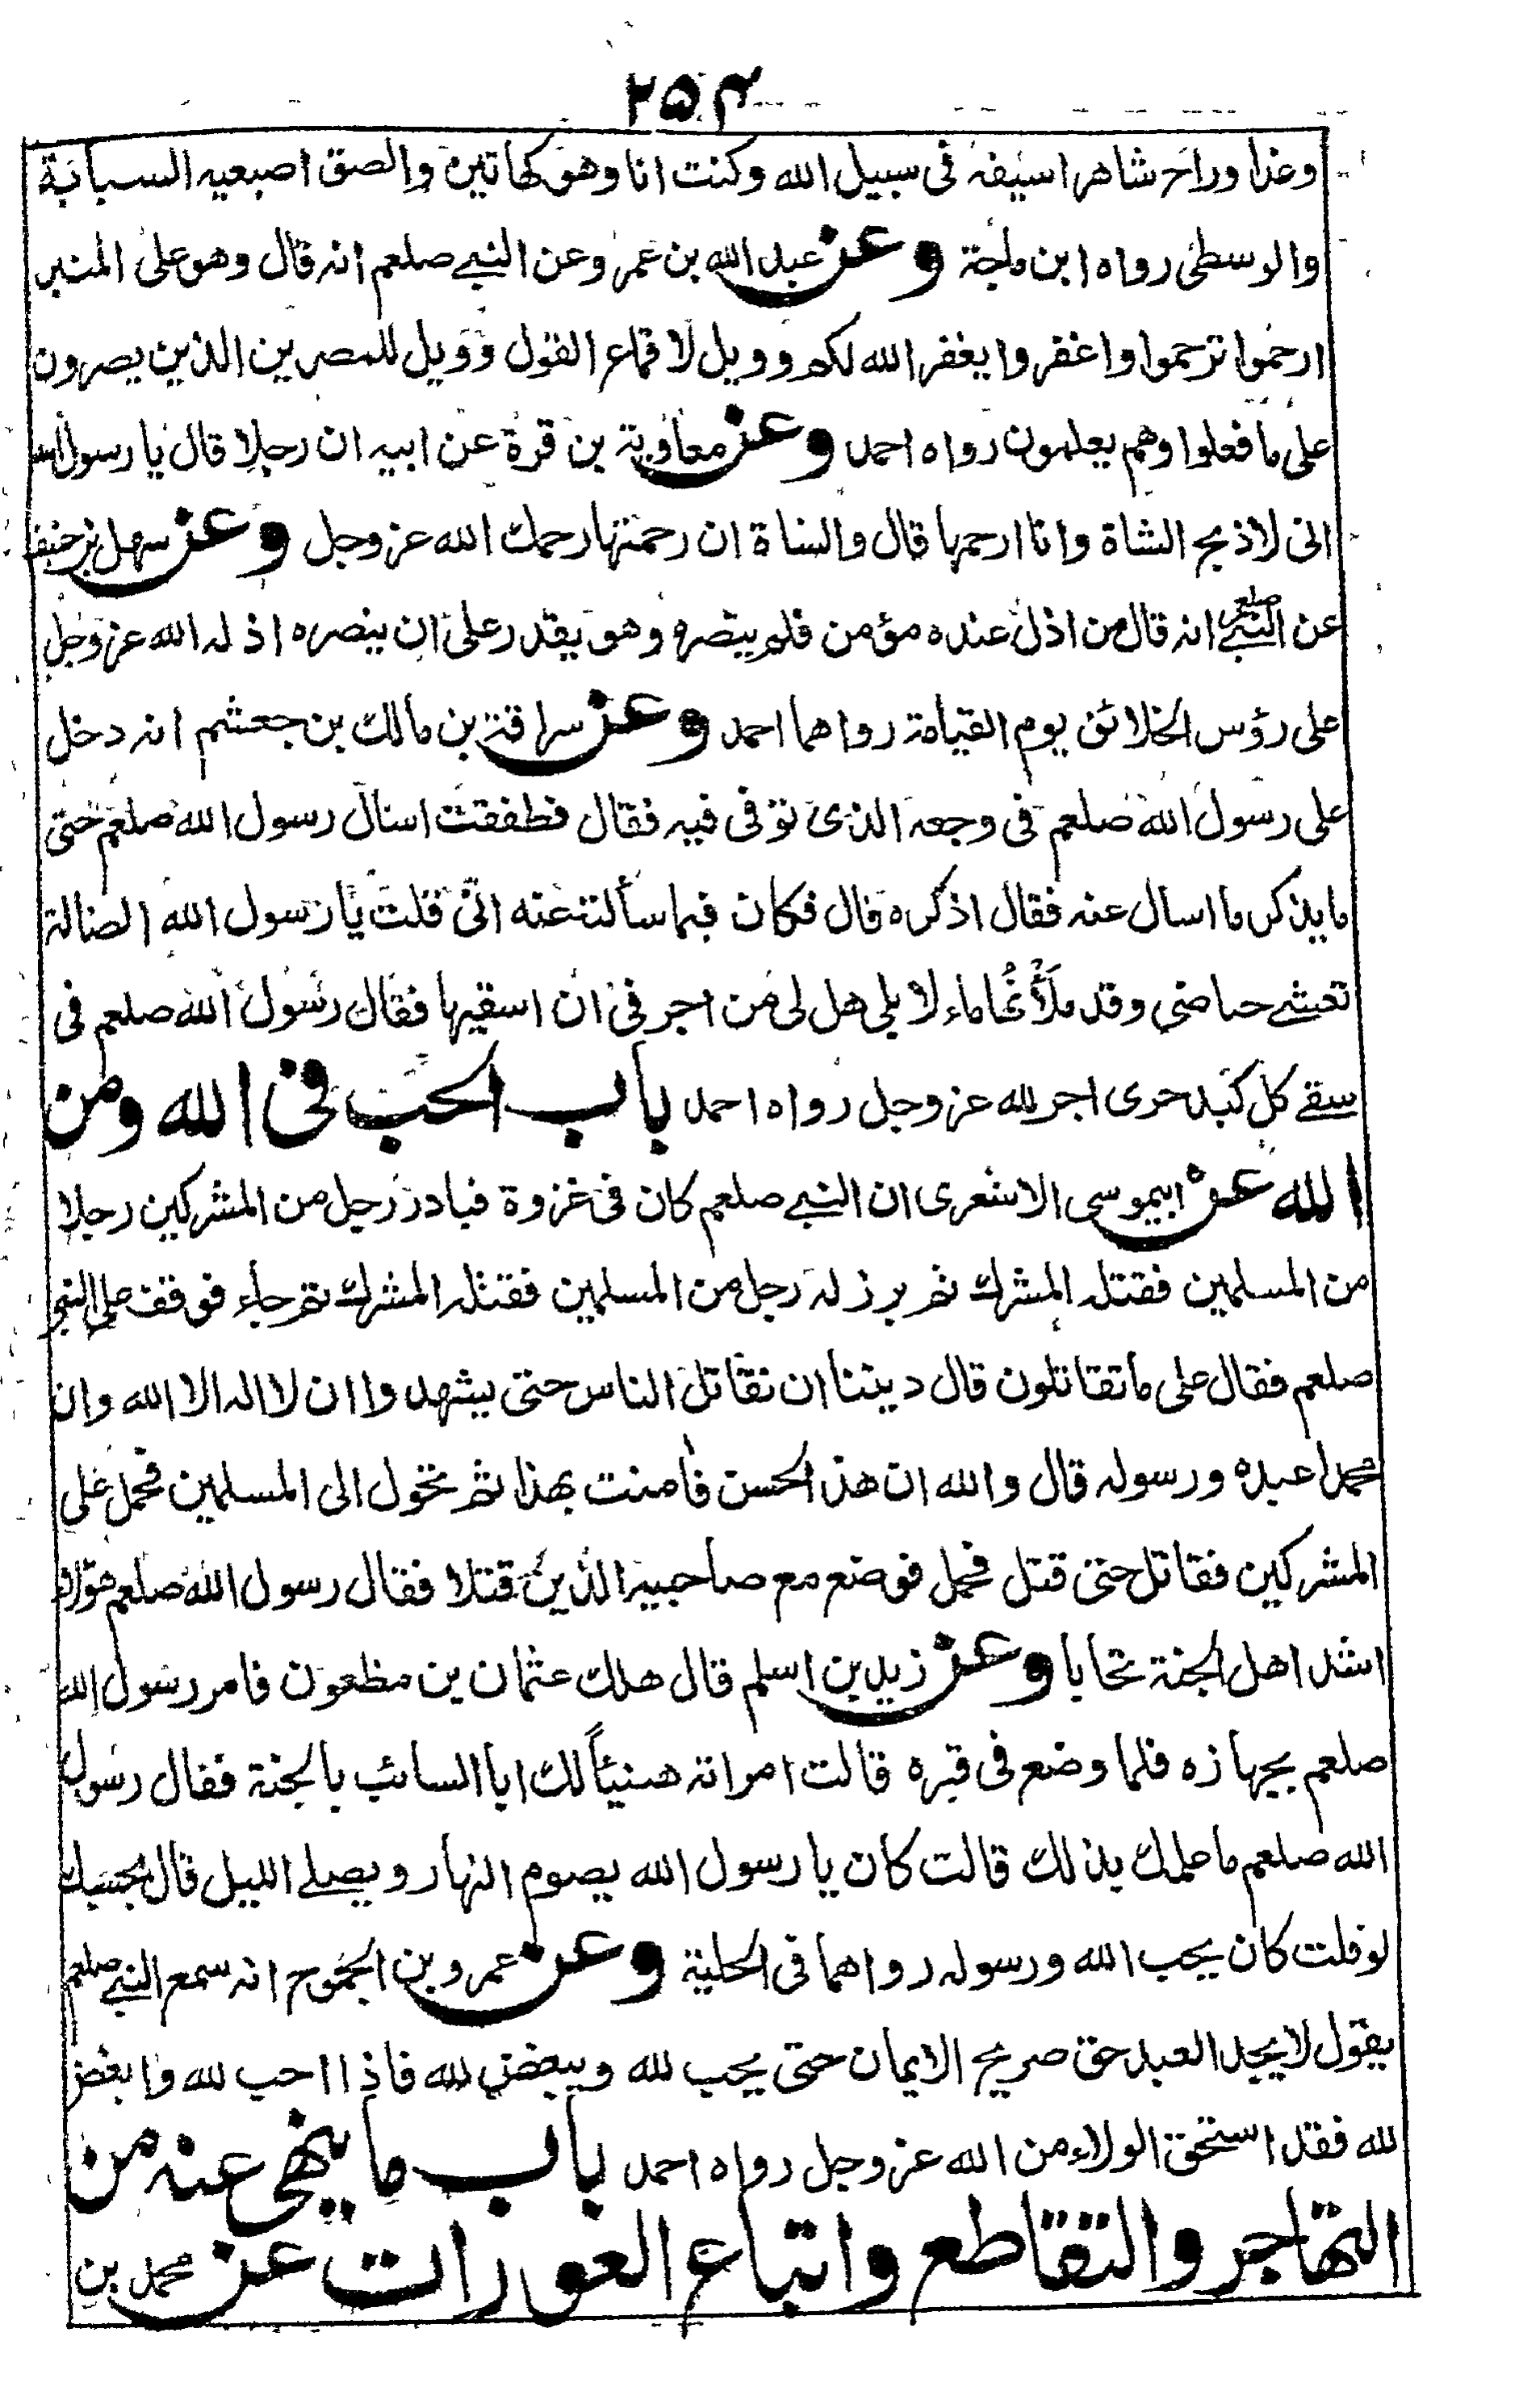 ۲۵۴
وغدا وراح شاهرا سيفه في سبيل الله وكنت انا وهو كهاتين والصق اصبعيه السبابة
والوسطى رواه ابن ماجة وعن عبد الله بن عمر وعن النبي صلعم انه قال وهو على المنبر
ارحموا ترحموا واغفروا يغفر الله لكم وويل لاقماع القول وويل للمصرين الذين يصرون
على ما فعلوا وهم يعلمون رواه احمد وعن معاوية بن قرة عن ابيه ان رجلا قال يا رسول الله
انى لاذبح الشاة وانا ارحمها قال والشاة ان رحمتها رحمك الله عز وجل وعن سهل بن حنيف
عن النبي صلعم انه قال من اذل عنده مؤمن فلم ينصره وهو يقدر على ان ينصره اذله الله عز وجل
على رؤس الخلائق يوم القيامة رواهما احمد وعن سراقة بن مالك بن جعشم انه دخل
على رسول الله صلعم فى وجعه الذى توفى فيه فقال فطفقت اسال رسول الله صلعم حتى
ما يذكر ما اسال عنه فقال اذكره قال فكان فيما سألته عنه انى قلت يا رسول الله الضالة
تغشى حياضى وقد ملأتُها ماء لابلى هل لى من اجر فى ان اسقيها فقال رسول الله صلعم فى
سقى كل كبد حرى اجر لله عز وجل رواه احمد باب الحب فى الله ومن
الله عن ابيموسى الاشعرى ان النبي صلعم كان فى غزوة فبادر رجل من المشركين رجلا
من المسلمين فقتله المشرك ثم برز له رجل من المسلمين فقتله المشرك ثم جاء فوقف على النبي
صلعم فقال على ما تقاتلون قال ديننا ان نقاتل الناس حتى يشهدوا ان لا اله الا الله وان
محمدا عبده ورسوله قال والله ان هذا لحسن فامنت بهذا ثم تحول الى المسلمين فحمل على
المشركين فقاتل حتى قتل فحمل فوضع مع صاحبيه الذين قتلا فقال رسول الله صلعم هؤلاء
اشد اهل الجنة تحابا وعن زيد بن اسلم قال هلك عثمان بن مظعون فامر رسول الله
صلعم بجهازه فلما وضع فى قبره قالت امراته هنيئاً لك ابا السائب بالجنة فقال رسول
الله صلعم ما علمك بذلك قالت كان يا رسول الله يصوم النهار ويصلى الليل قال بحسبك
لو قلت كان يحب الله ورسوله رواهما فى الحلية وعن عمرو بن الجموح انه سمع النبي صلعم
يقول لا يجد العبد حق صريح الايمان حتى يحب لله ويبغض لله فاذا احب لله وابغض
لله فقد استحق الولاء من الله عز وجل رواه احمد باب ما ينهى عنه من
التهاجر والتقاطع واتباع العورات عن محمد بن